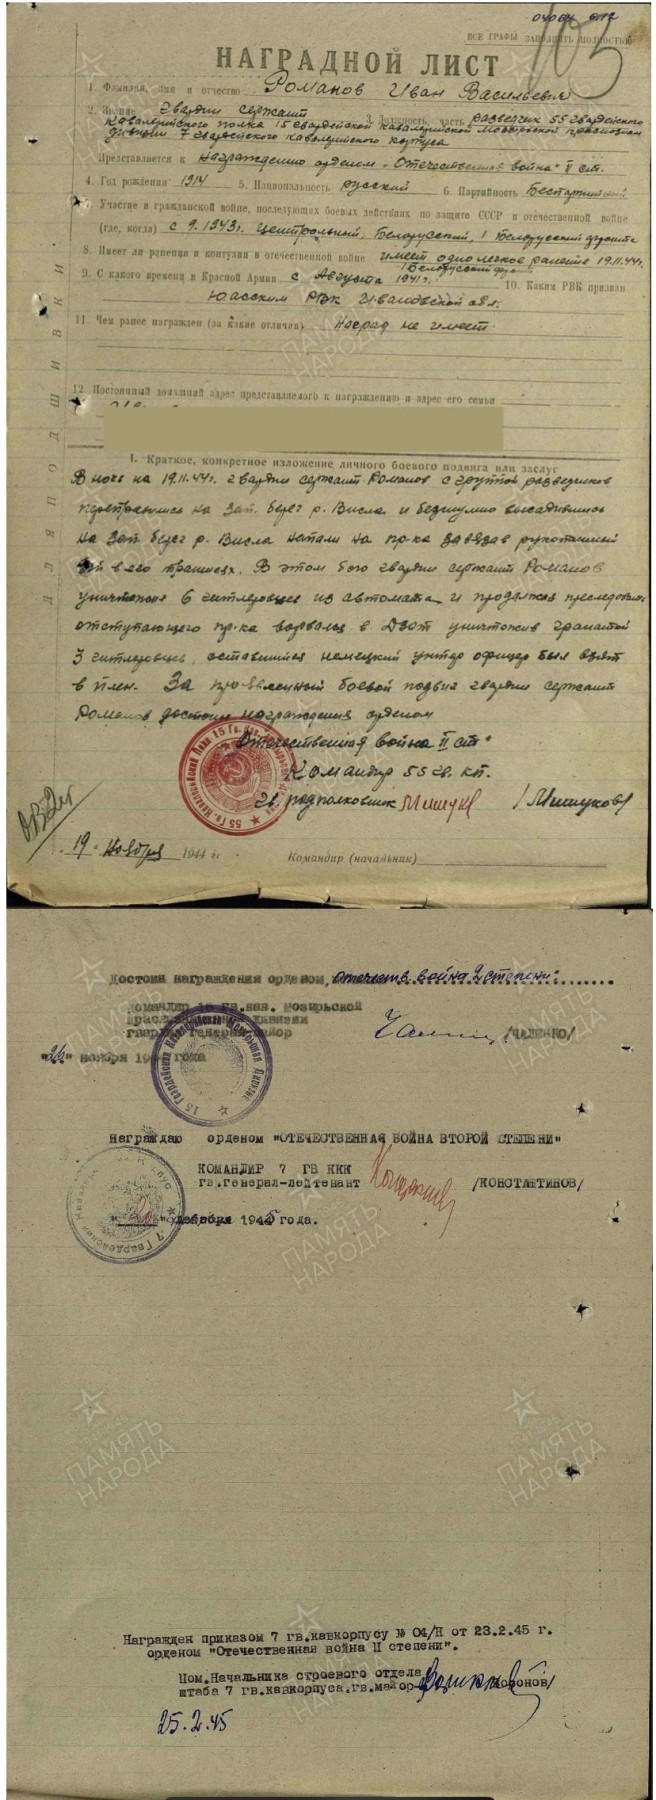 04064
ВСЕ ГРАФЫ ЗАПОЛНЯТЬ ПОЛНОСТЬЮ
НАГРАДНОЙ ЛИСТ
1. Фамилия, имя и отчество Романов Иван Васильевич
2. Звание гвардии сержант 3. Должность, часть разведчик 55 гвардейского
кавалерийского полка 15 гвардейской кавалерийской Мозырьской краснознам
дивизии 7 гвардейского кавалерийского корпуса
Представляется к награждению орденом „Отечественная война" II ст.
4. Год рождения 1914 5. Национальность русский 6. Партийность Беспартийный
7. Участие в гражданской войне, последующих боевых действиях по защите СССР и отечественной войне
(где, когда) с 9.1943г. Центральный, Белорусский, 1 Белорусский фронта
8. Имеет ли ранения и контузии в отечественной войне имеет одно легкое ранение 19.11.44г.
1 Белорусский фр
9. С какого времени в Красной Армии с Августа 1941г. 10. Каким РВК призван
РВК Ивановской обл.
11. Чем ранее награжден (за какие отличия) Наград не имеет
12. Постоянный домашний адрес представляемого к награждению и адрес его семьи
ДЛЯ ПОДШИВКИ
I. Краткое, конкретное изложение личного боевого подвига или заслуг
В ночь на 19.11.44г. гвардии сержант Романов с группой разведчиков
переправились на зап. берег р. Висла и бесшумно высадившись
на зап. берег р. Висла напали на пр-ка завязав рукопашный
бой в его траншеях. В этом бою гвардии сержант Романов
уничтожил 6 гитлеровцев из автомата и продолжая преследовать
отступающего пр-ка ворвался в Дзот уничтожив гранатой
3 гитлеровцев, оставшийся немецкий унтер офицер был взят
в плен. За проявленный боевой подвиг гвардии сержант
Романов достоин награждения орденом
„Отечественная война II ст"
Командир 55 гв. кп.
гв. подполковник /Мишуков/
19 Ноября 1944 г.
Командир (начальник)
Достоин награждения орденом Отечеств. война 2 степени
Командир 15 гв.кав. Мозырьской
Краснознаменной дивизии
гвардии генерал-майор /ЧАЛЕНКО/
"26" ноября 194 года
15 Гвардейская Кавалерийская Мозырьская Дивизия
Награждаю орденом "ОТЕЧЕСТВЕННАЯ ВОЙНА ВТОРОЙ СТЕПЕНИ"
КОМАНДИР 7 ГВ ККК
гв.генерал-лейтенант /КОНСТАНТИНОВ/
"20" декабря 194 года.
ПАМЯТЬ
НАРОДА
Награжден приказом 7 гв.кавкорпусу № 04/Н от 23.2.45 г.
орденом "Отечественная война II степени".
Пом.Начальника строевого отдела
штаба 7 гв.кавкорпуса.гв.майор-
25.2.45